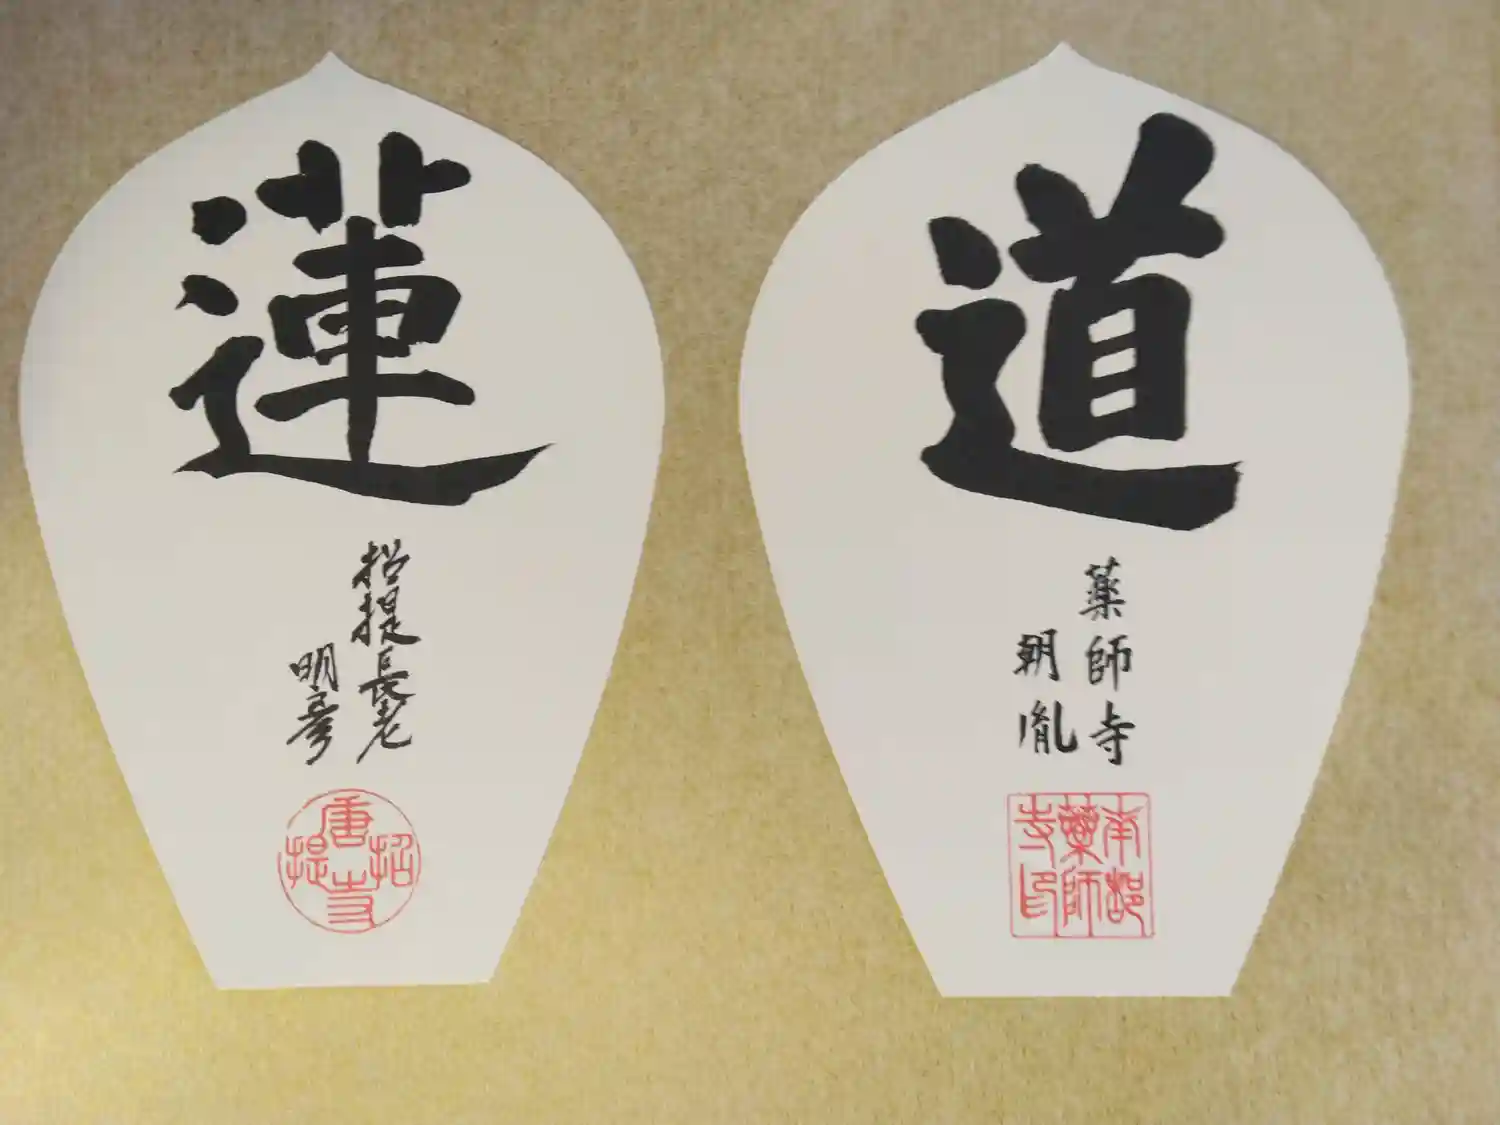 蓮
招提長老
明彦
唐招提寺
道
薬師寺
朝胤
南都
薬師
寺印